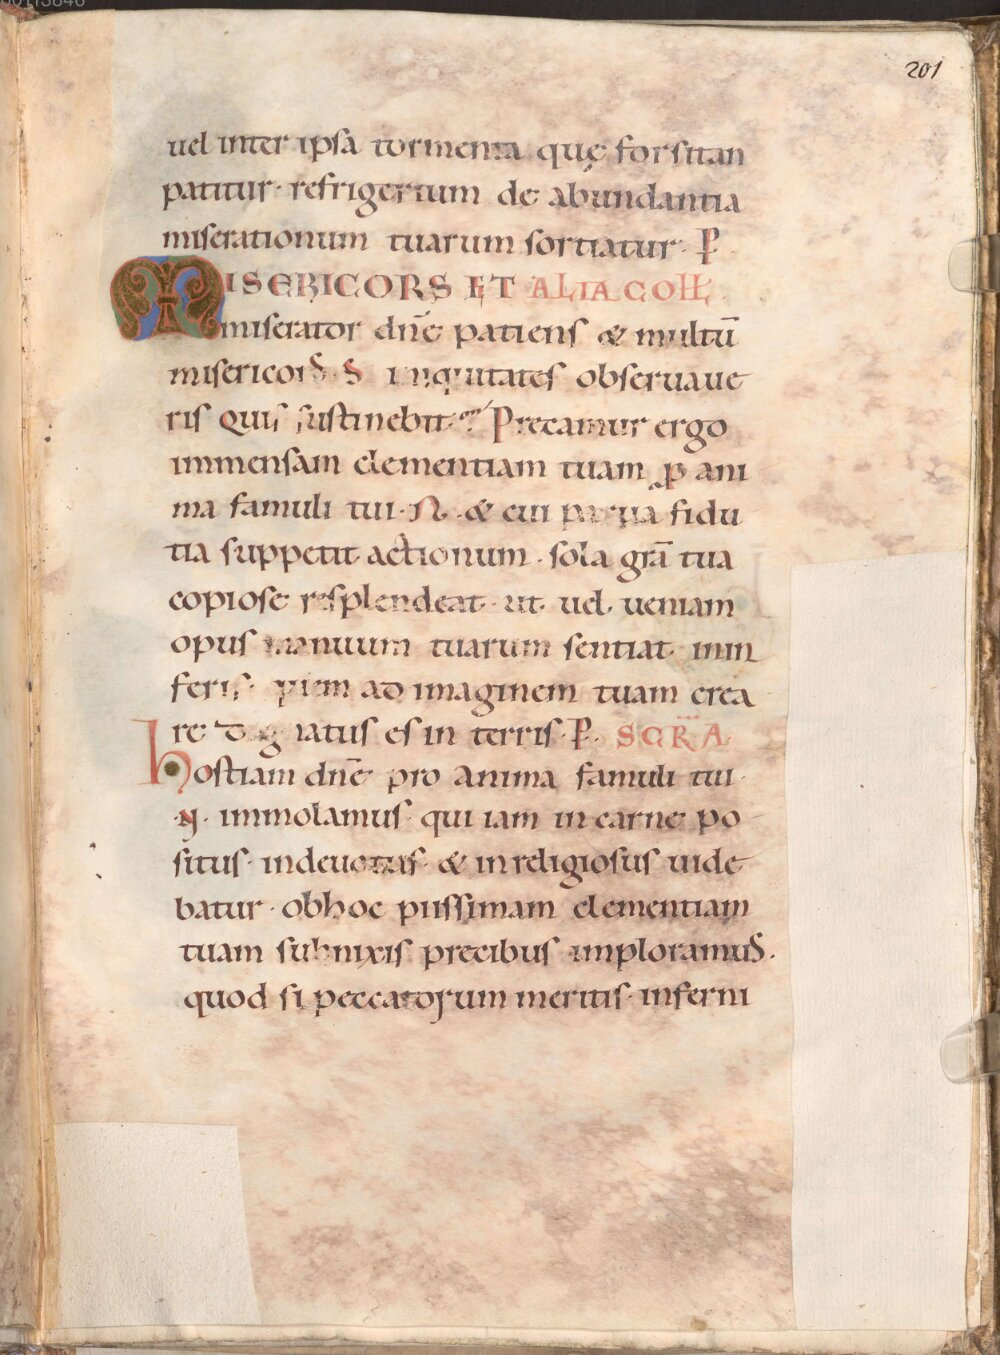 201
uel inter ipsa tormenta quę forsitan
patitur · refrigerium de abundantia
miserationum tuarum sortiatur · P̄
MISERICORS ET ALIA COLL
miserator dn̄e patiens & multū
misericors · S iniquitates obseruaue
ris quis sustinebit · Precamur ergo
immensam clementiam tuam ꝓ ani
ma famuli tui · N · & cui parua fidu
tia suppetit actionum · sola grā tua
copiose resplendeat · ut uel ueniam
opus manuum tuarum sentiat · in in
feris · quem ad imaginem tuam crea
re dignatus es in terris · P̄ · SCRA
hostiam dn̄e pro anima famuli tui ·
· N · immolamus · qui iam in carne po
situs · indeuotus · & inreligiosus uide
batur · ob hoc piissimam clementiam
tuam subnixis precibus imploramus ·
quod si peccatorum meritis · inferni